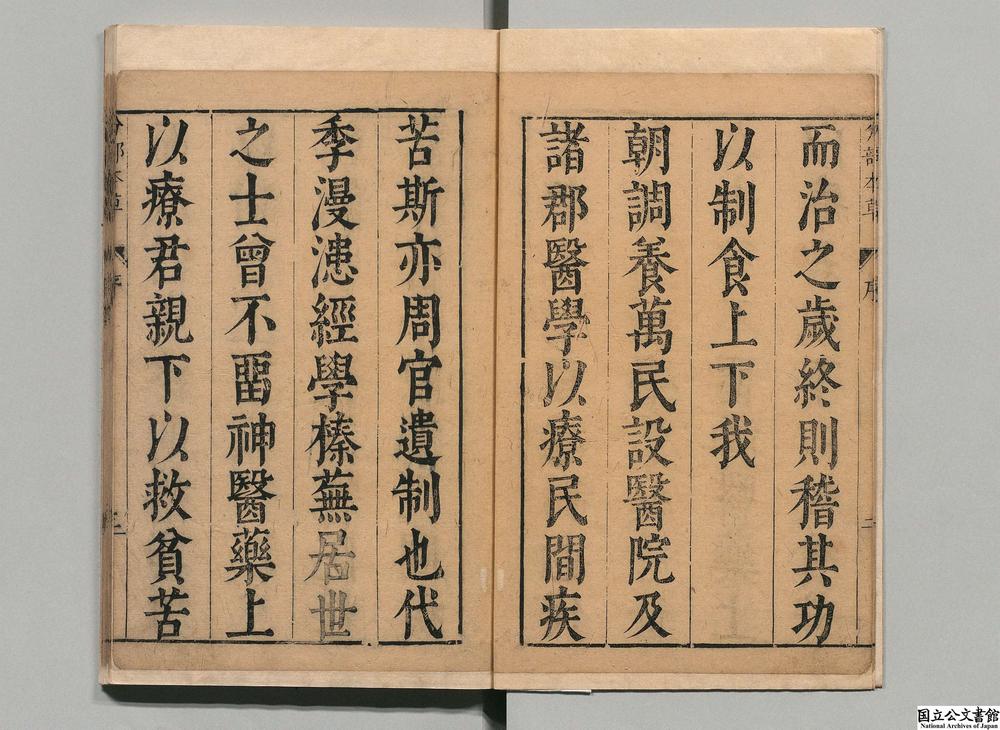 而治之歲終則稽其功
以制食上下我
朝調養萬民設醫院及
諸郡醫學以療民間疾
苦斯亦周官遺制也代
季漫漶經學榛蕪居世
之士曾不畱神醫藥上
以療君親下以救貧苦
序
二
国立公文書館
National Archives of Japan